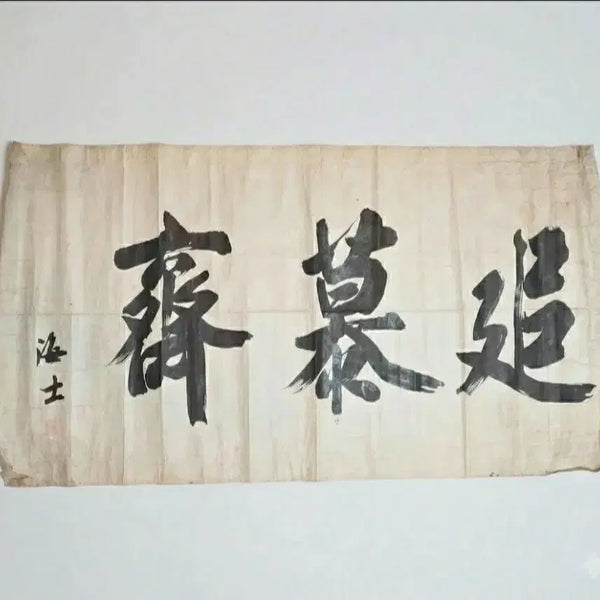 追慕齋
海士